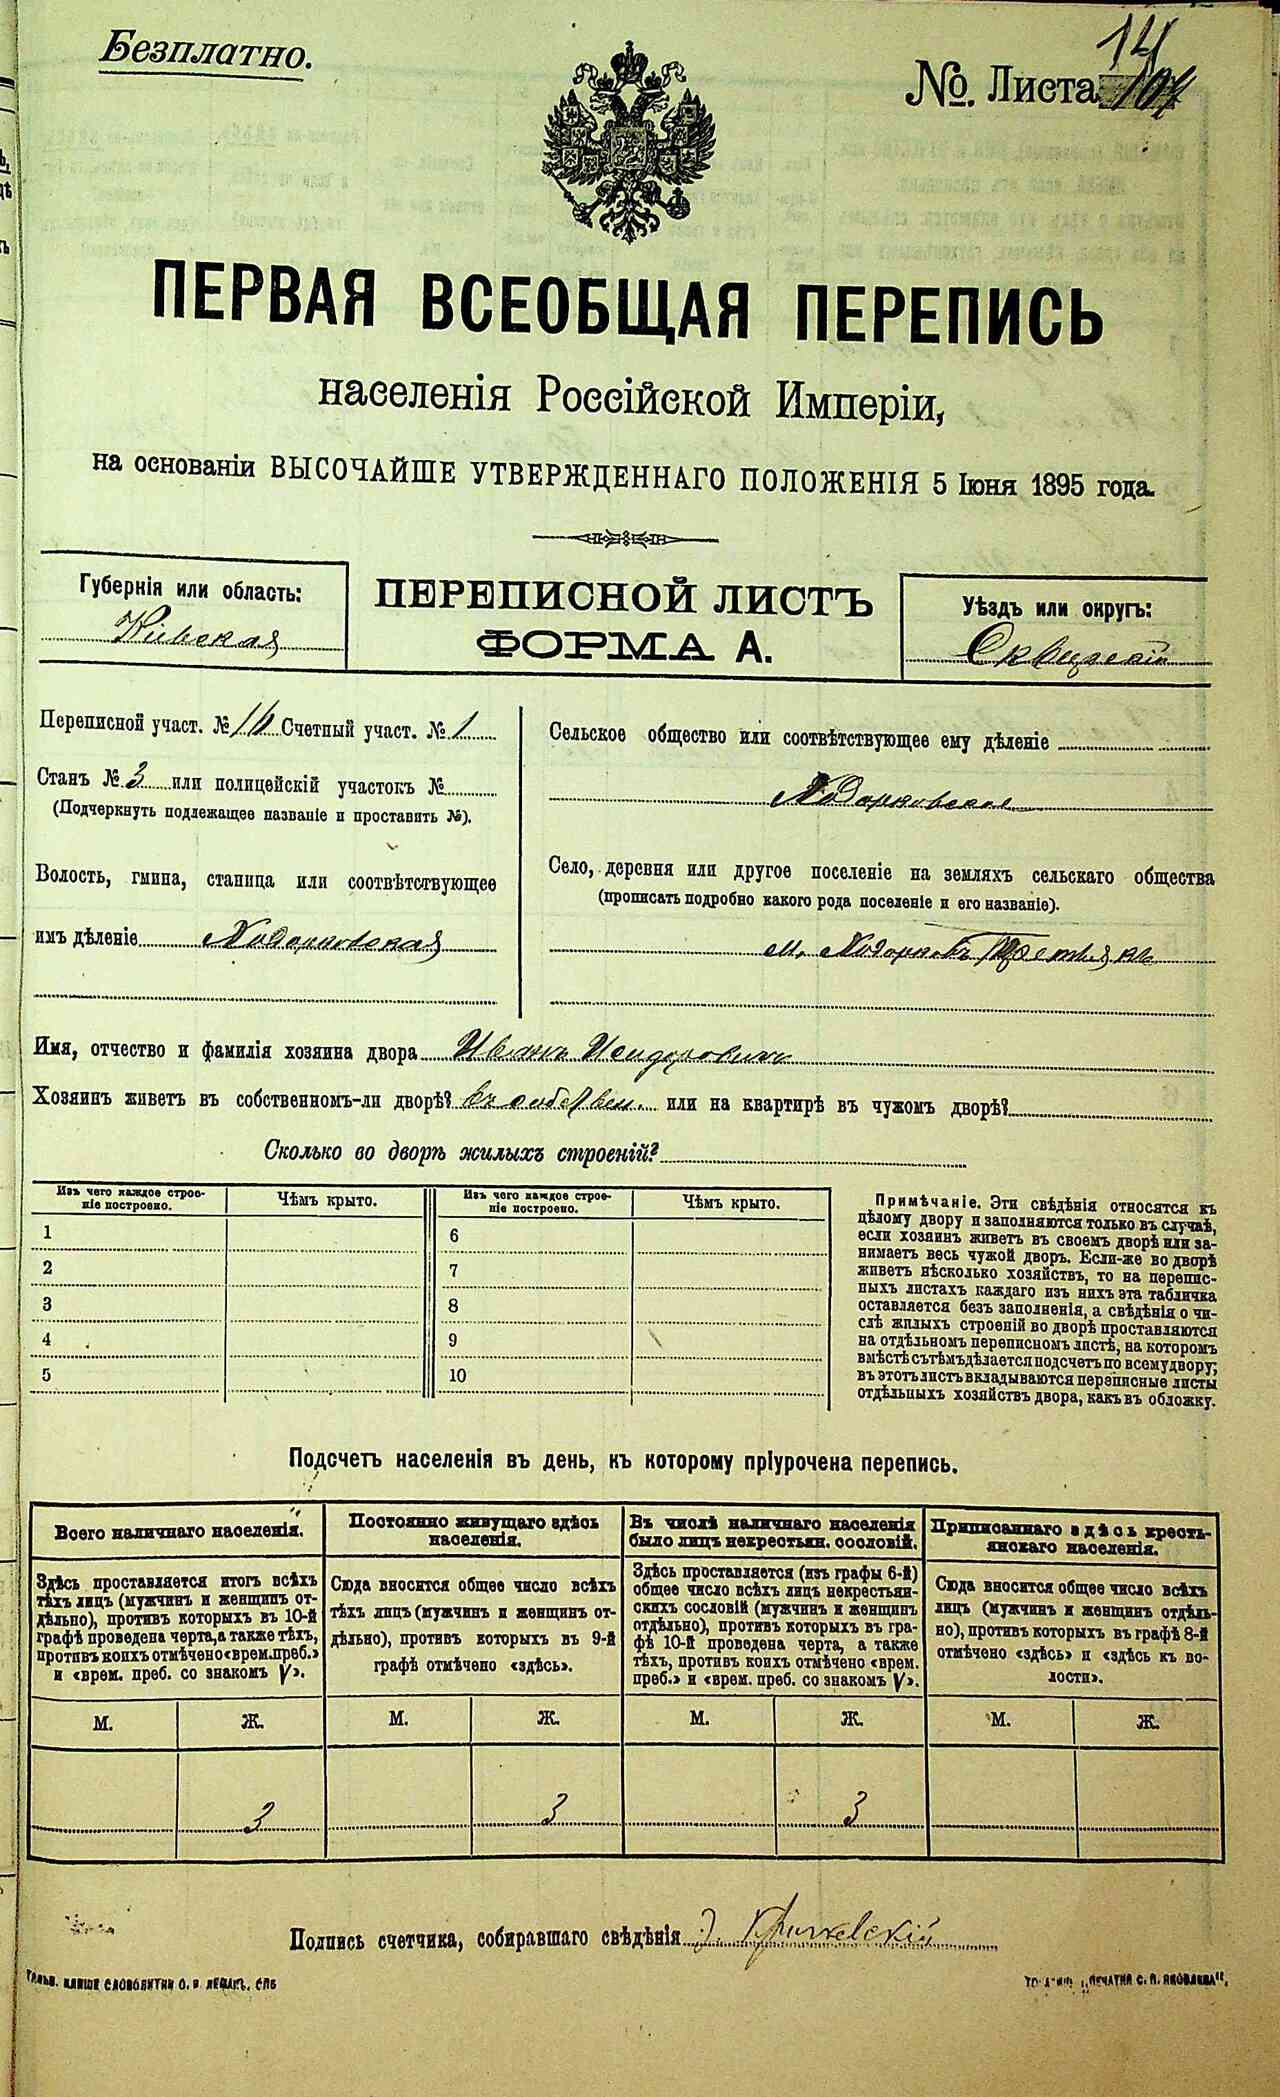 Безплатно.
№ Листа 14
ПЕРВАЯ ВСЕОБЩАЯ ПЕРЕПИСЬ
населенія Россійской Имперіи,
на основаніи ВЫСОЧАЙШЕ УТВЕРЖДЕННАГО ПОЛОЖЕНІЯ 5 Іюня 1895 года.
Губернія или область:
Кіевская
ПЕРЕПИСНОЙ ЛИСТЪ
ФОРМА А.
Уѣздъ или округъ:
Сквирскій
Переписной участ. № 16 Счетный участ. № 1
Станъ № 3 или полицейскій участокъ №
(Подчеркнуть подлежащее названіе и проставить №).
Волость, гмина, станица или соотвѣтствующее
имъ дѣленіе Ходорковская
Сельское общество или соотвѣтствующее ему дѣленіе
Ходорковское
Село, деревня или другое поселеніе на земляхъ сельскаго общества
(прописать подробно какого рода поселеніе и его названіе).
м. Ходорковъ
Имя, отчество и фамилія хозяина двора Иванъ Исидоровичъ
Хозяинъ живетъ въ собственномъ-ли дворѣ? въ собствен. или на квартирѣ въ чужомъ дворѣ?
Сколько во дворѣ жилыхъ строеній?
Изъ чего каждое строе-
ніе построено.
Чѣмъ крыто.
Изъ чего каждое строе-
ніе построено.
Чѣмъ крыто.
1
2
3
4
5
6
7
8
9
10
Примѣчаніе. Эти свѣдѣнія относятся къ
цѣлому двору и заполняются только въ случаѣ,
если хозяинъ живетъ въ своемъ дворѣ или за-
нимаетъ весь чужой дворъ. Если-же во дворѣ
живетъ нѣсколько хозяйствъ, то на перепис-
ныхъ листахъ каждаго изъ нихъ эта табличка
оставляется безъ заполненія, а свѣдѣнія о чи-
слѣ жилыхъ строеній во дворѣ проставляются
на отдѣльномъ переписномъ листѣ, на которомъ
вмѣстѣ съ тѣмъ дѣлается подсчетъ по всему двору;
въ этотъ листъ вкладываются переписные листы
отдѣльныхъ хозяйствъ двора, какъ въ обложку.
Подсчетъ населенія въ день, къ которому пріурочена перепись.
Всего наличнаго населенія.
Здѣсь проставляется итогъ всѣхъ
тѣхъ лицъ (мужчинъ и женщинъ от-
дѣльно), противъ которыхъ въ 10-й
графѣ проведена черта, а также тѣхъ,
противъ коихъ отмѣчено «врем. преб.»
и «врем. преб. со знакомъ V».
М.
Ж.
3
Постоянно живущаго здѣсь
населенія.
Сюда вносится общее число всѣхъ
тѣхъ лицъ (мужчинъ и женщинъ от-
дѣльно), противъ которыхъ въ 9-й
графѣ отмѣчено «здѣсь».
М.
Ж.
3
Въ числѣ наличнаго населенія
было лицъ некрестьян. сословій.
Здѣсь проставляется (изъ графы 6-й)
общее число всѣхъ лицъ некрестьян-
скихъ сословій (мужчинъ и женщинъ
отдѣльно), противъ которыхъ въ гра-
фѣ 10-й проведена черта, а также
тѣхъ, противъ коихъ отмѣчено «врем.
преб.» и «врем. преб. со знакомъ V».
М.
Ж.
3
Приписаннаго здѣсь кресть-
янскаго населенія.
Сюда вносится общее число всѣхъ
лицъ (мужчинъ и женщинъ отдѣль-
но), противъ которыхъ въ графѣ 8-й
отмѣчено «здѣсь» и «здѣсь къ во-
лости».
М.
Ж.
Подпись счетчика, собиравшаго свѣдѣнія
С. П. ЯКОВЛЕВА",